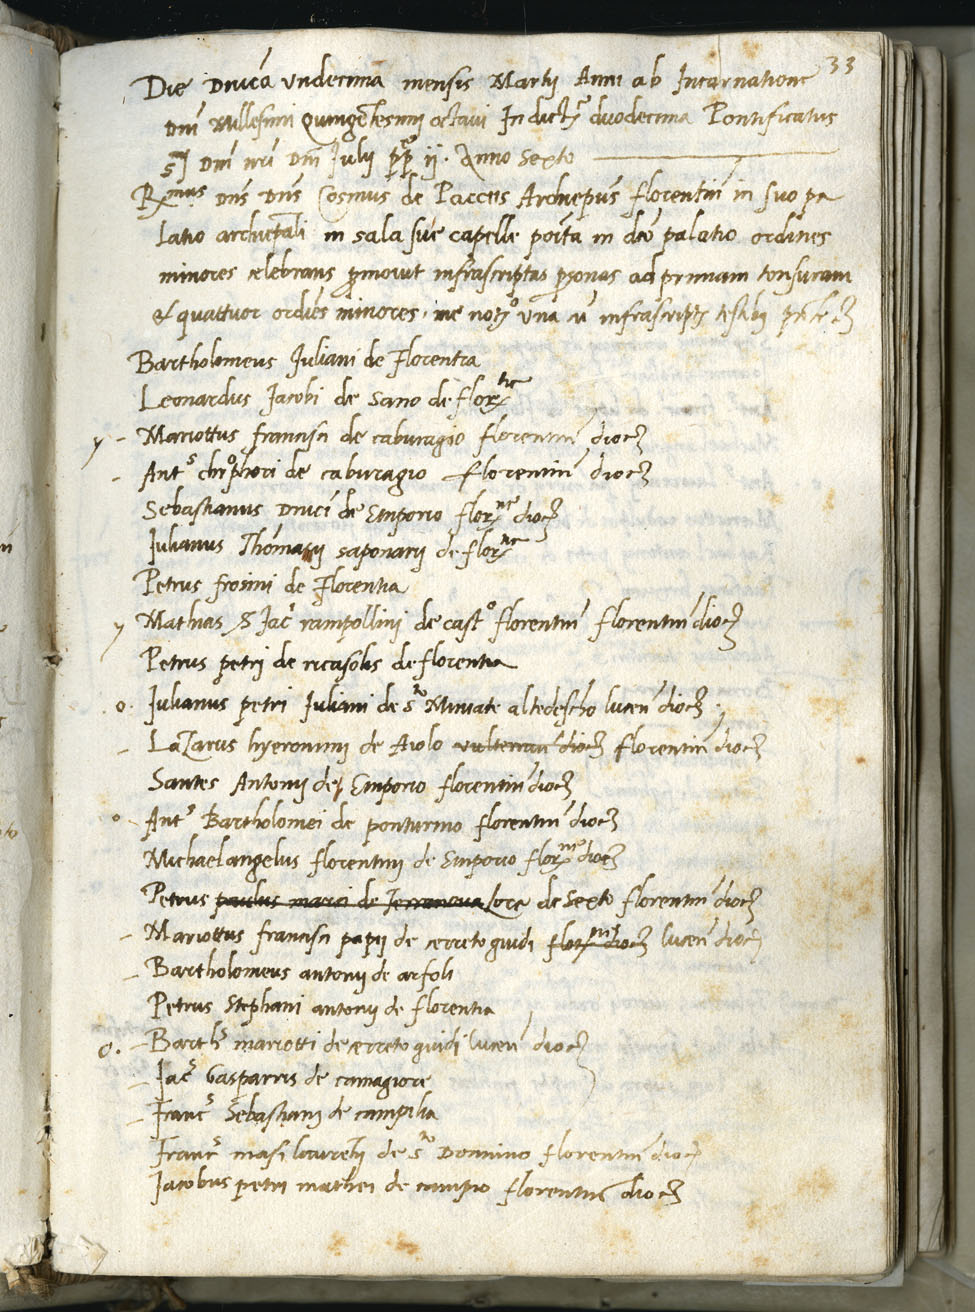 33
Die Dnica Undecima mensis Martij Anni ab Incarnatione
Dni Millesimi Quingetesimi octavi Indict duodecima Pontificatus
s Dni nri Dni Julij pp ij. Anno Sexto
Rmus Dns Dns Cosmus de Pacciis Archiepus florentin in suo pa
latio archiepali in sala sue capelle posita in dco palatio ordines
minores celebrans promovit infrascriptas psonas ad primam tonsuram
& quattuor ordies minores. me noto una cu infrascript testib
Bartholomeus Juliani de Florentia
Leonardus Jacobi de Sano de flortie
y - Mariottus francisci de caburagio florentin dioc
- Ants chrophori de caburagio florentin dioc
Sebastianus Dnici de Emporio flor dioc
Julianus Thomasij saponarij de flor
Petrus frosini de Florentia
y Mathias S Jac rampollini de casto florentin florentin dioc
Petrus petri de ricasolis de florentia
o. Julianus petri Juliani de sto Miniate al tedescho lucen dioc
- Lazarus hyeronimi de Aiolo vulterran dioc florentin dioc
Santes Antonij de Emporio florentin dioc
o - Ants Bartholomei de ponturmo florentin dioc
Michaelangelus florentini de Emporio flor dioc
Petrus paulus marci de Terranova Lore de Sexto florentin dioc
- Mariottus francisci papij de cerreto guidi flor dioc lucen dioc
- Bartholomeus antonij de arfoli
Petrus Stephani antonij de florentia
o. - Barths mariotti de cerreto guidi lucen dioc
- Jacs Gasparris de camagiore
- Francs Sebastiani de campilia
Francs masi de sto Donnino florentin dioc
Jacobus petri mathei de campio florentin dioc